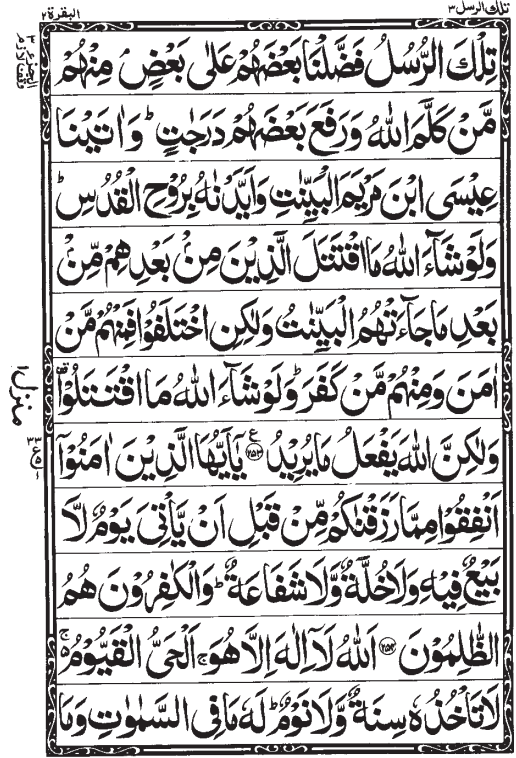 تلك الرسل ٣
البقرة ٢
تِلْكَ الرُّسُلُ فَضَّلْنَا بَعْضَهُمْ عَلٰى بَعْضٍ ۘ مِنْهُمْ
مَّنْ كَلَّمَ اللّٰهُ وَرَفَعَ بَعْضَهُمْ دَرَجٰتٍ ؕ وَاٰتَيْنَا
عِيْسَى ابْنَ مَرْيَمَ الْبَيِّنٰتِ وَاَيَّدْنٰهُ بِرُوْحِ الْقُدُسِ ؕ
وَلَوْ شَآءَ اللّٰهُ مَا اقْتَتَلَ الَّذِيْنَ مِنْۢ بَعْدِهِمْ مِّنْۢ
بَعْدِ مَا جَآءَتْهُمُ الْبَيِّنٰتُ وَلٰكِنِ اخْتَلَفُوْا فَمِنْهُمْ مَّنْ
اٰمَنَ وَمِنْهُمْ مَّنْ كَفَرَ ؕ وَلَوْ شَآءَ اللّٰهُ مَا اقْتَتَلُوْا ۟
وَلٰكِنَّ اللّٰهَ يَفْعَلُ مَا يُرِيْدُ ﴿۲۵۳﴾ ع يٰۤاَيُّهَا الَّذِيْنَ اٰمَنُوْۤا
اَنْفِقُوْا مِمَّا رَزَقْنٰكُمْ مِّنْ قَبْلِ اَنْ يَّاْتِيَ يَوْمٌ لَّا
بَيْعٌ فِيْهِ وَلَا خُلَّةٌ وَّلَا شَفَاعَةٌ ؕ وَالْكٰفِرُوْنَ هُمُ
الظّٰلِمُوْنَ ﴿۲۵۴﴾ اَللّٰهُ لَاۤ اِلٰهَ اِلَّا هُوَ ۚ اَلْحَيُّ الْقَيُّوْمُ ۚ۬
لَا تَاْخُذُهٗ سِنَةٌ وَّلَا نَوْمٌ ؕ لَهٗ مَا فِي السَّمٰوٰتِ وَمَا
منزل ۱